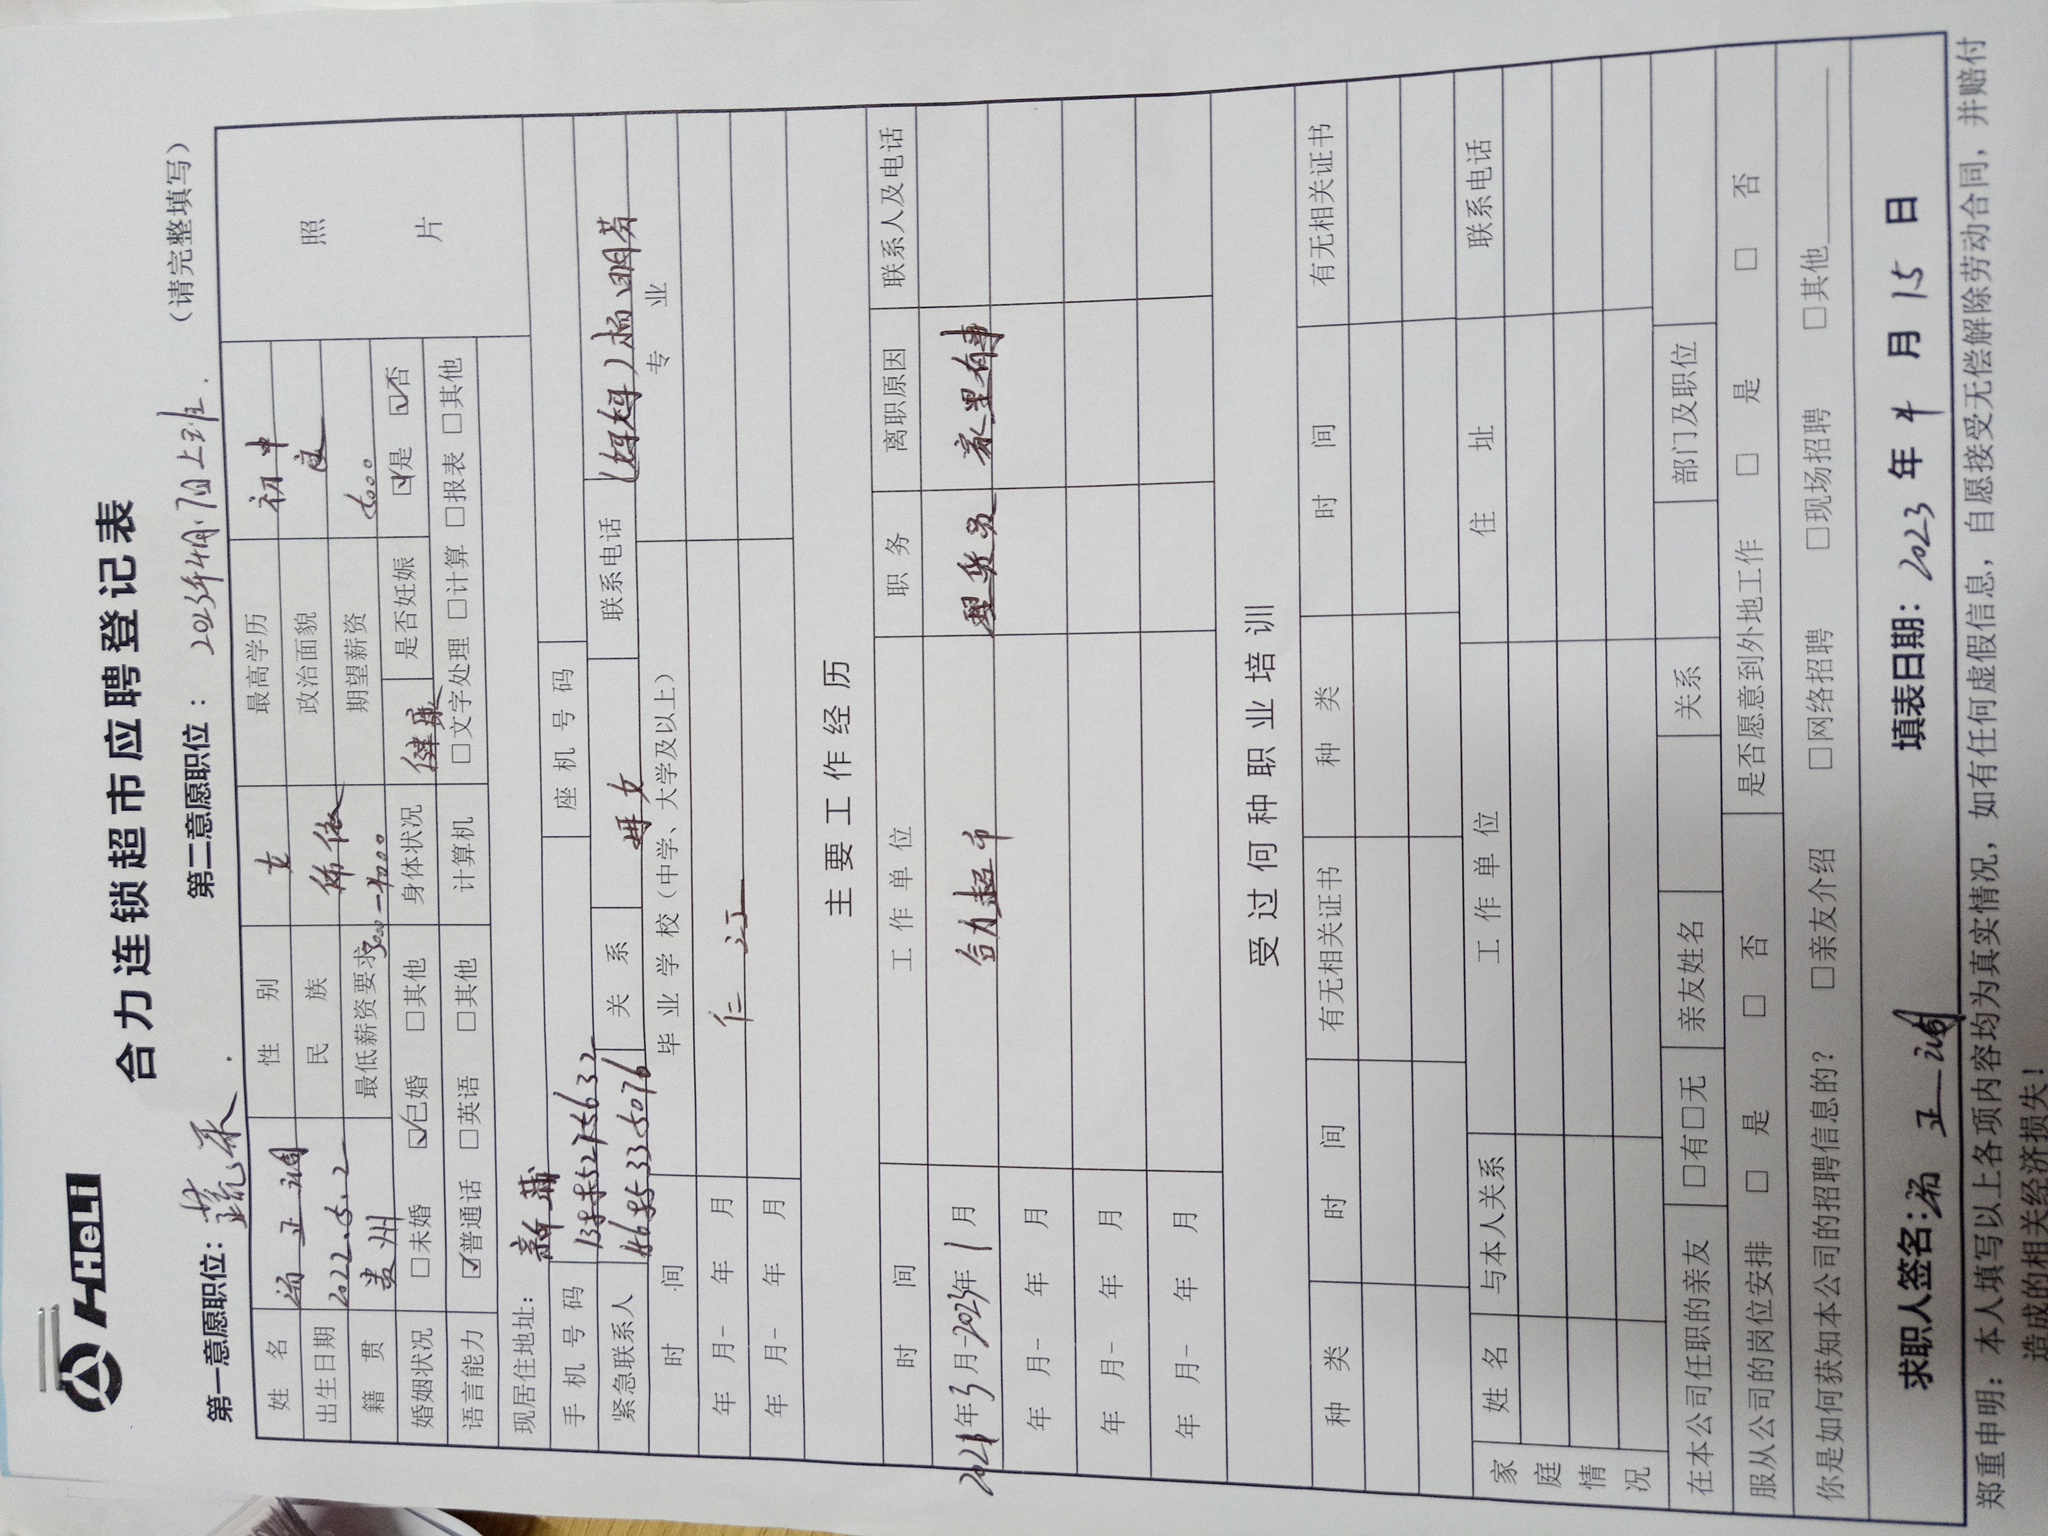 HeLi
合力连锁超市应聘登记表
第一意愿职位：蔬禾. 第二意愿职位： 2023年4月17日上班. （请完整填写）
姓名 性别 女 最高学历 初中 照片
出生日期 2022.5.2 民族 政治面貌
籍贯 贵州 最低薪资要求 3000-4000 期望薪资
婚姻状况 □未婚 ☑已婚 □其他 身体状况 健康 是否妊娠 ☑是 ☑否
语言能力 ☑普通话 □英语 □其他 计算机 □文字处理 □计算 □报表 □其他
现居住地址： 新蒲
手机号码 座机号码
紧急联系人 关系 母女 联系电话
时间 毕业学校（中学、大学及以上） 专业
年 月- 年 月 仁江
年 月- 年 月
主要工作经历
时间 工作单位 职务 离职原因 联系人及电话
2021年3月-2023年1月 合力超市 理货员 家里有事
年 月- 年 月
年 月- 年 月
年 月- 年 月
受过何种职业培训
种类 时间 有无相关证书 种类 时间 有无相关证书
家庭情况 姓名 与本人关系 工作单位 住址 联系电话
在本公司任职的亲友 □有□无 亲友姓名 关系 部门及职位
服从公司的岗位安排 □ 是 □ 否 是否愿意到外地工作 □ 是 □ 否
你是如何获知本公司的招聘信息的？ □亲友介绍 □网络招聘 □现场招聘 □其他
求职人签名： 填表日期：2023年4月15日
郑重申明：本人填写以上各项内容均为真实情况，如有任何虚假信息，自愿接受无偿解除劳动合同，并赔付
造成的相关经济损失！